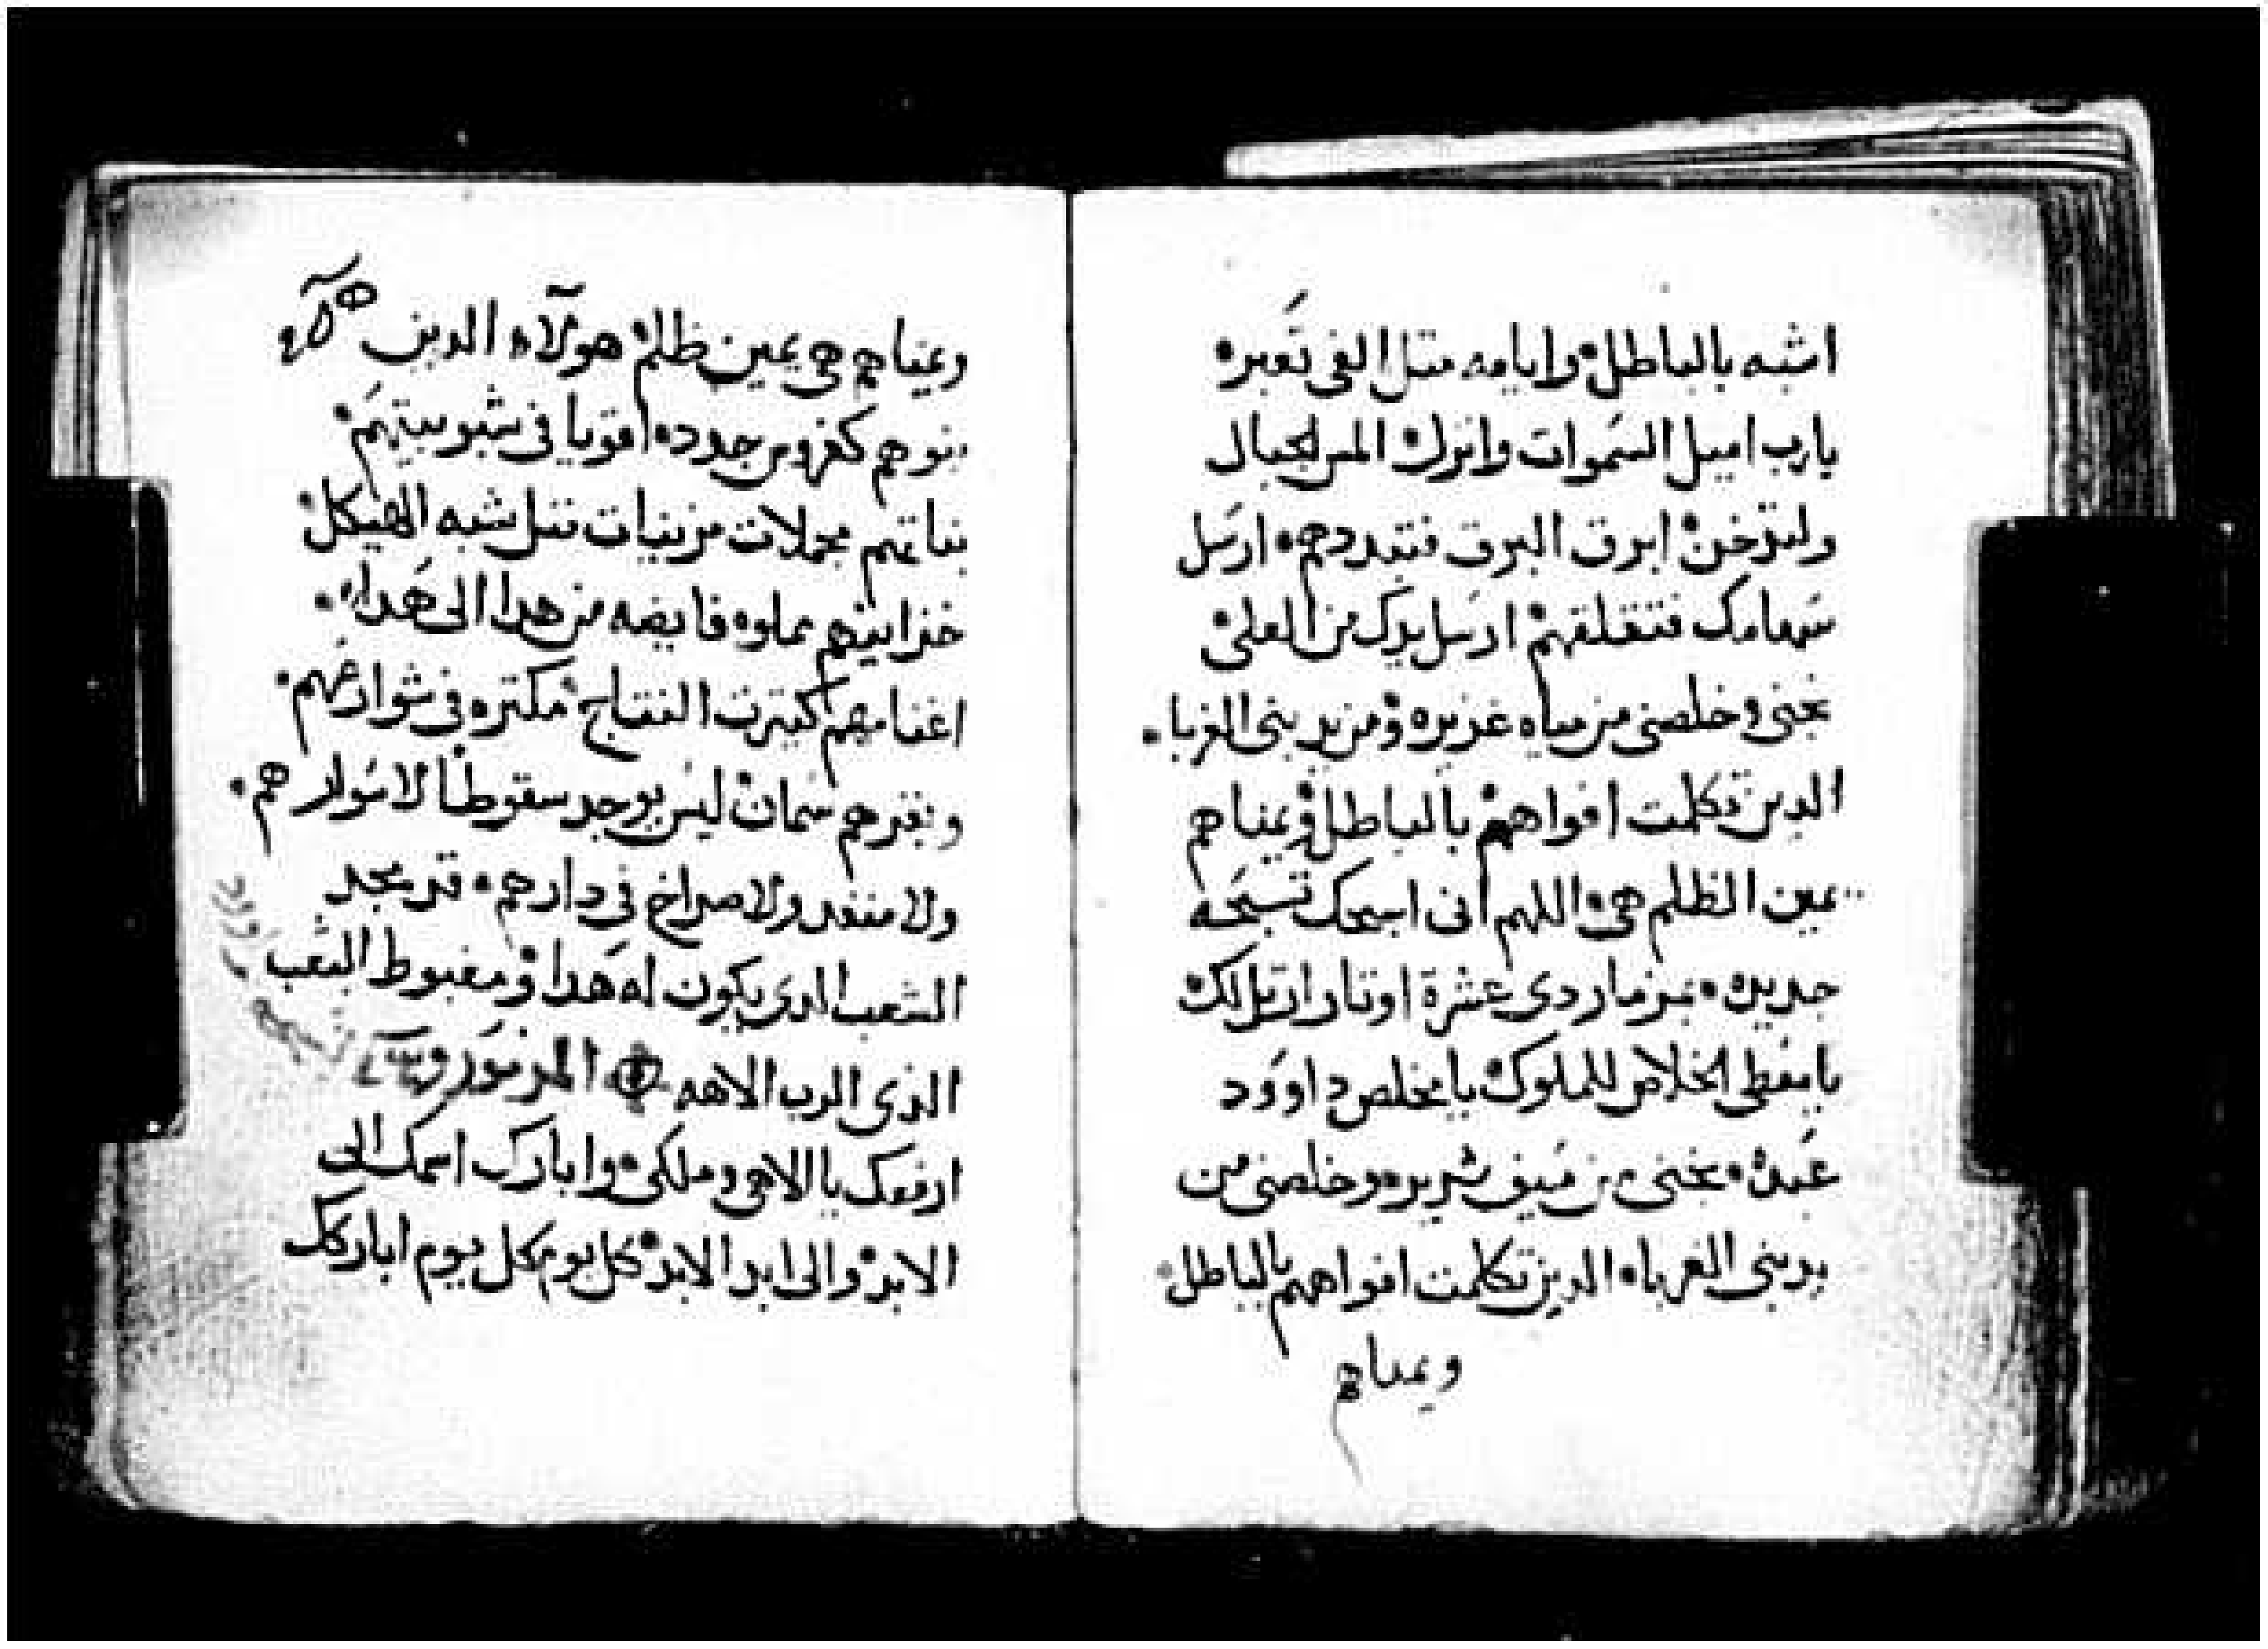 اشبه بالباطل وايامه متل الفى تعبر
يارب اميل السموات وانزل المس الجبال
ولتدخن ابرق البرق فتبددهم ارسل
سهامك فتقلقهم ارسل يدك من العلى
نجنى وخلصنى من مياه غزيره ومن يد بنى الغربا
الدين تكلمت افواههم بالباطل ويمناهم
يمين الظلم هى اللهم انى اسبحك تسبحه
جديده بمزمار دى عشرة اوتار ارتل لك
يامعطى الخلاص للملوك يامخلص داوود
عبده نجنى من سيف شريره وخلصنى من
يد بنى الغرباء الدين تكلمت افواههم بالباطل
ويمناهم
ويمناهم هى يمين ظلم هولاء الدين
بنوهم كغروس جدده اقويا فى شبوبيتهم
بناتهم مجملات مزينات متل شبه الهيكل
خزاينهم مملوه فايضه من هدا الى هدا
اغنامهم كتيرت النتاج مكتره فى شوارعهم
وبقرهم سمان ليس يوجد سقوطا لاسوارهم
ولا منفد ولا صراخ فى دارهم قد مجد
الشعب الدى يكون له هدا ومغبوط الشعب
الذى الرب الاهه المزمور
ارفعك يا الاهى وملكى وابارك اسمك الى
الابد والى ابد الابد كل يوم كل يوم اباركك